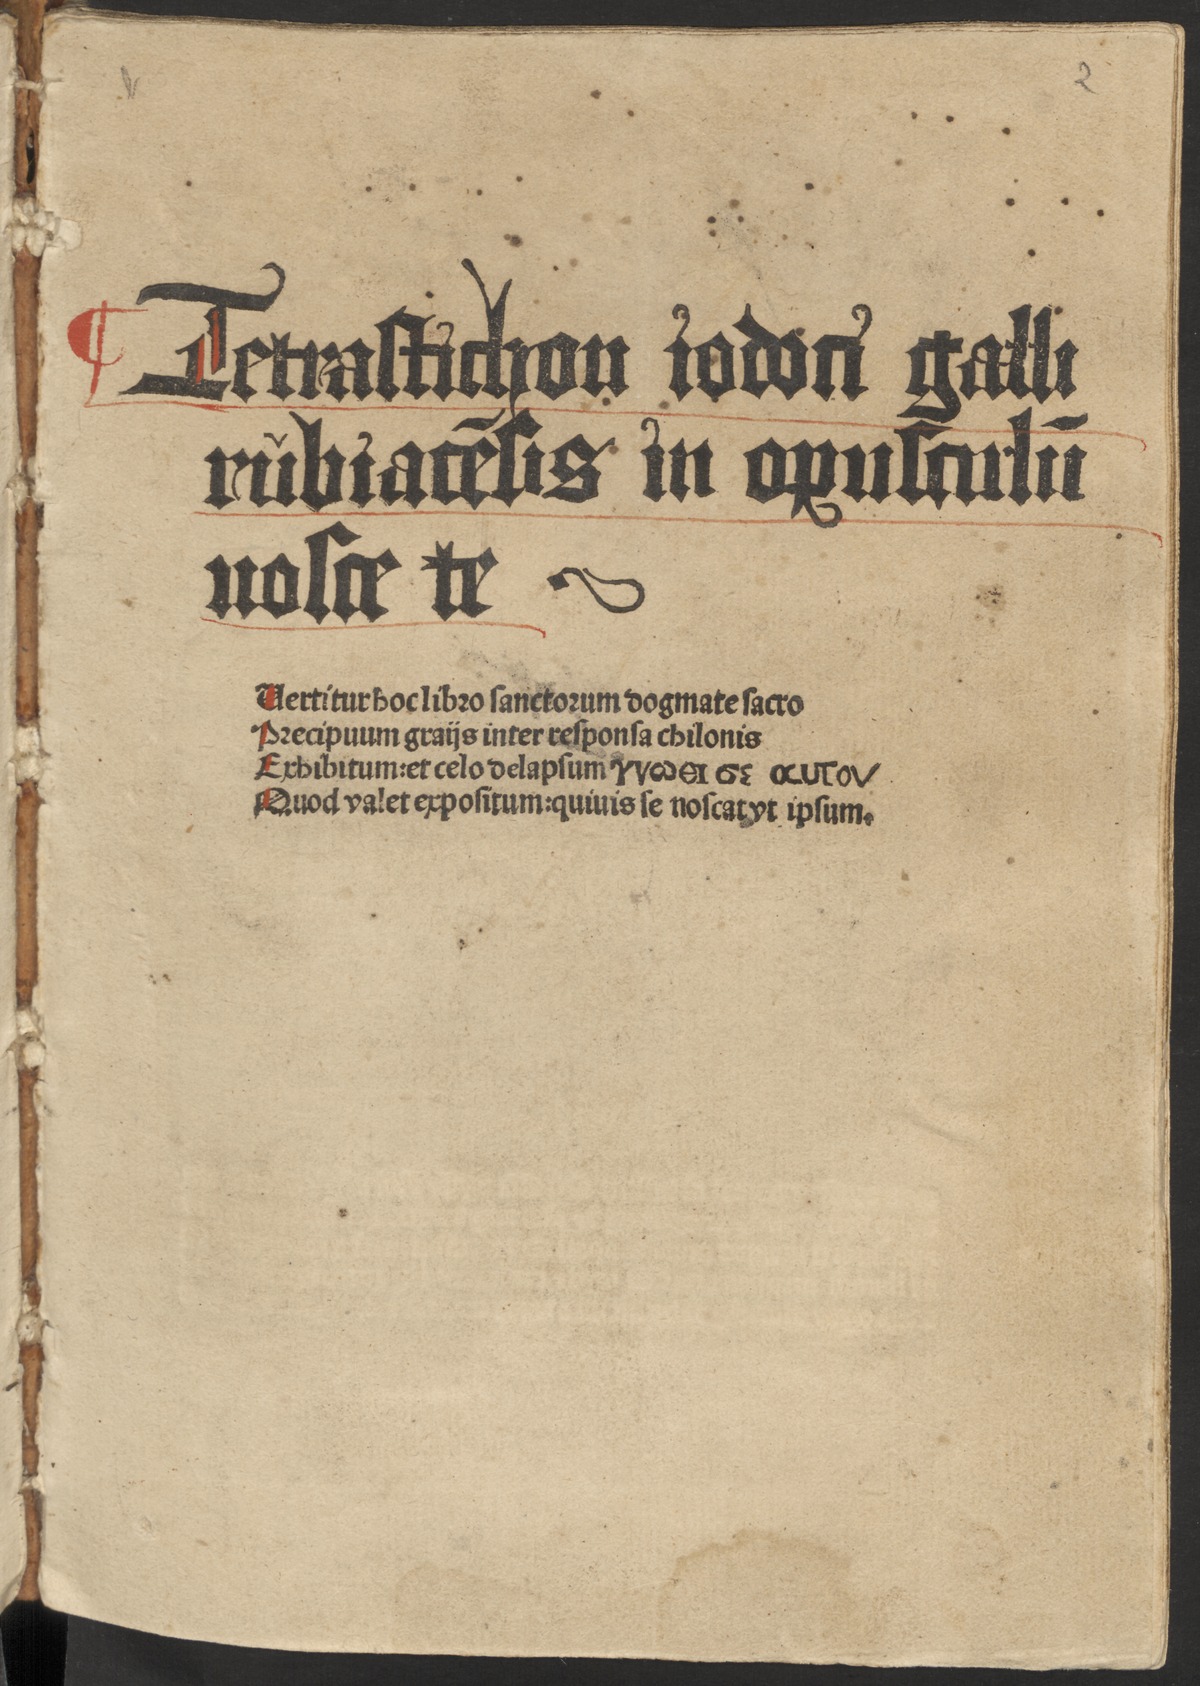 2
¶ Tetrastichon iodoci galli
růbiacẽsis in opusculũ
nosce te
Uertitur hoc libro sanctorum dogmate sacro
Precipuum graijs inter responsa chilonis
Exhibitum:et celo delapsum γνωθι σε αυτον
Quod valet expositum:quiuis se noscat vt ipsum.